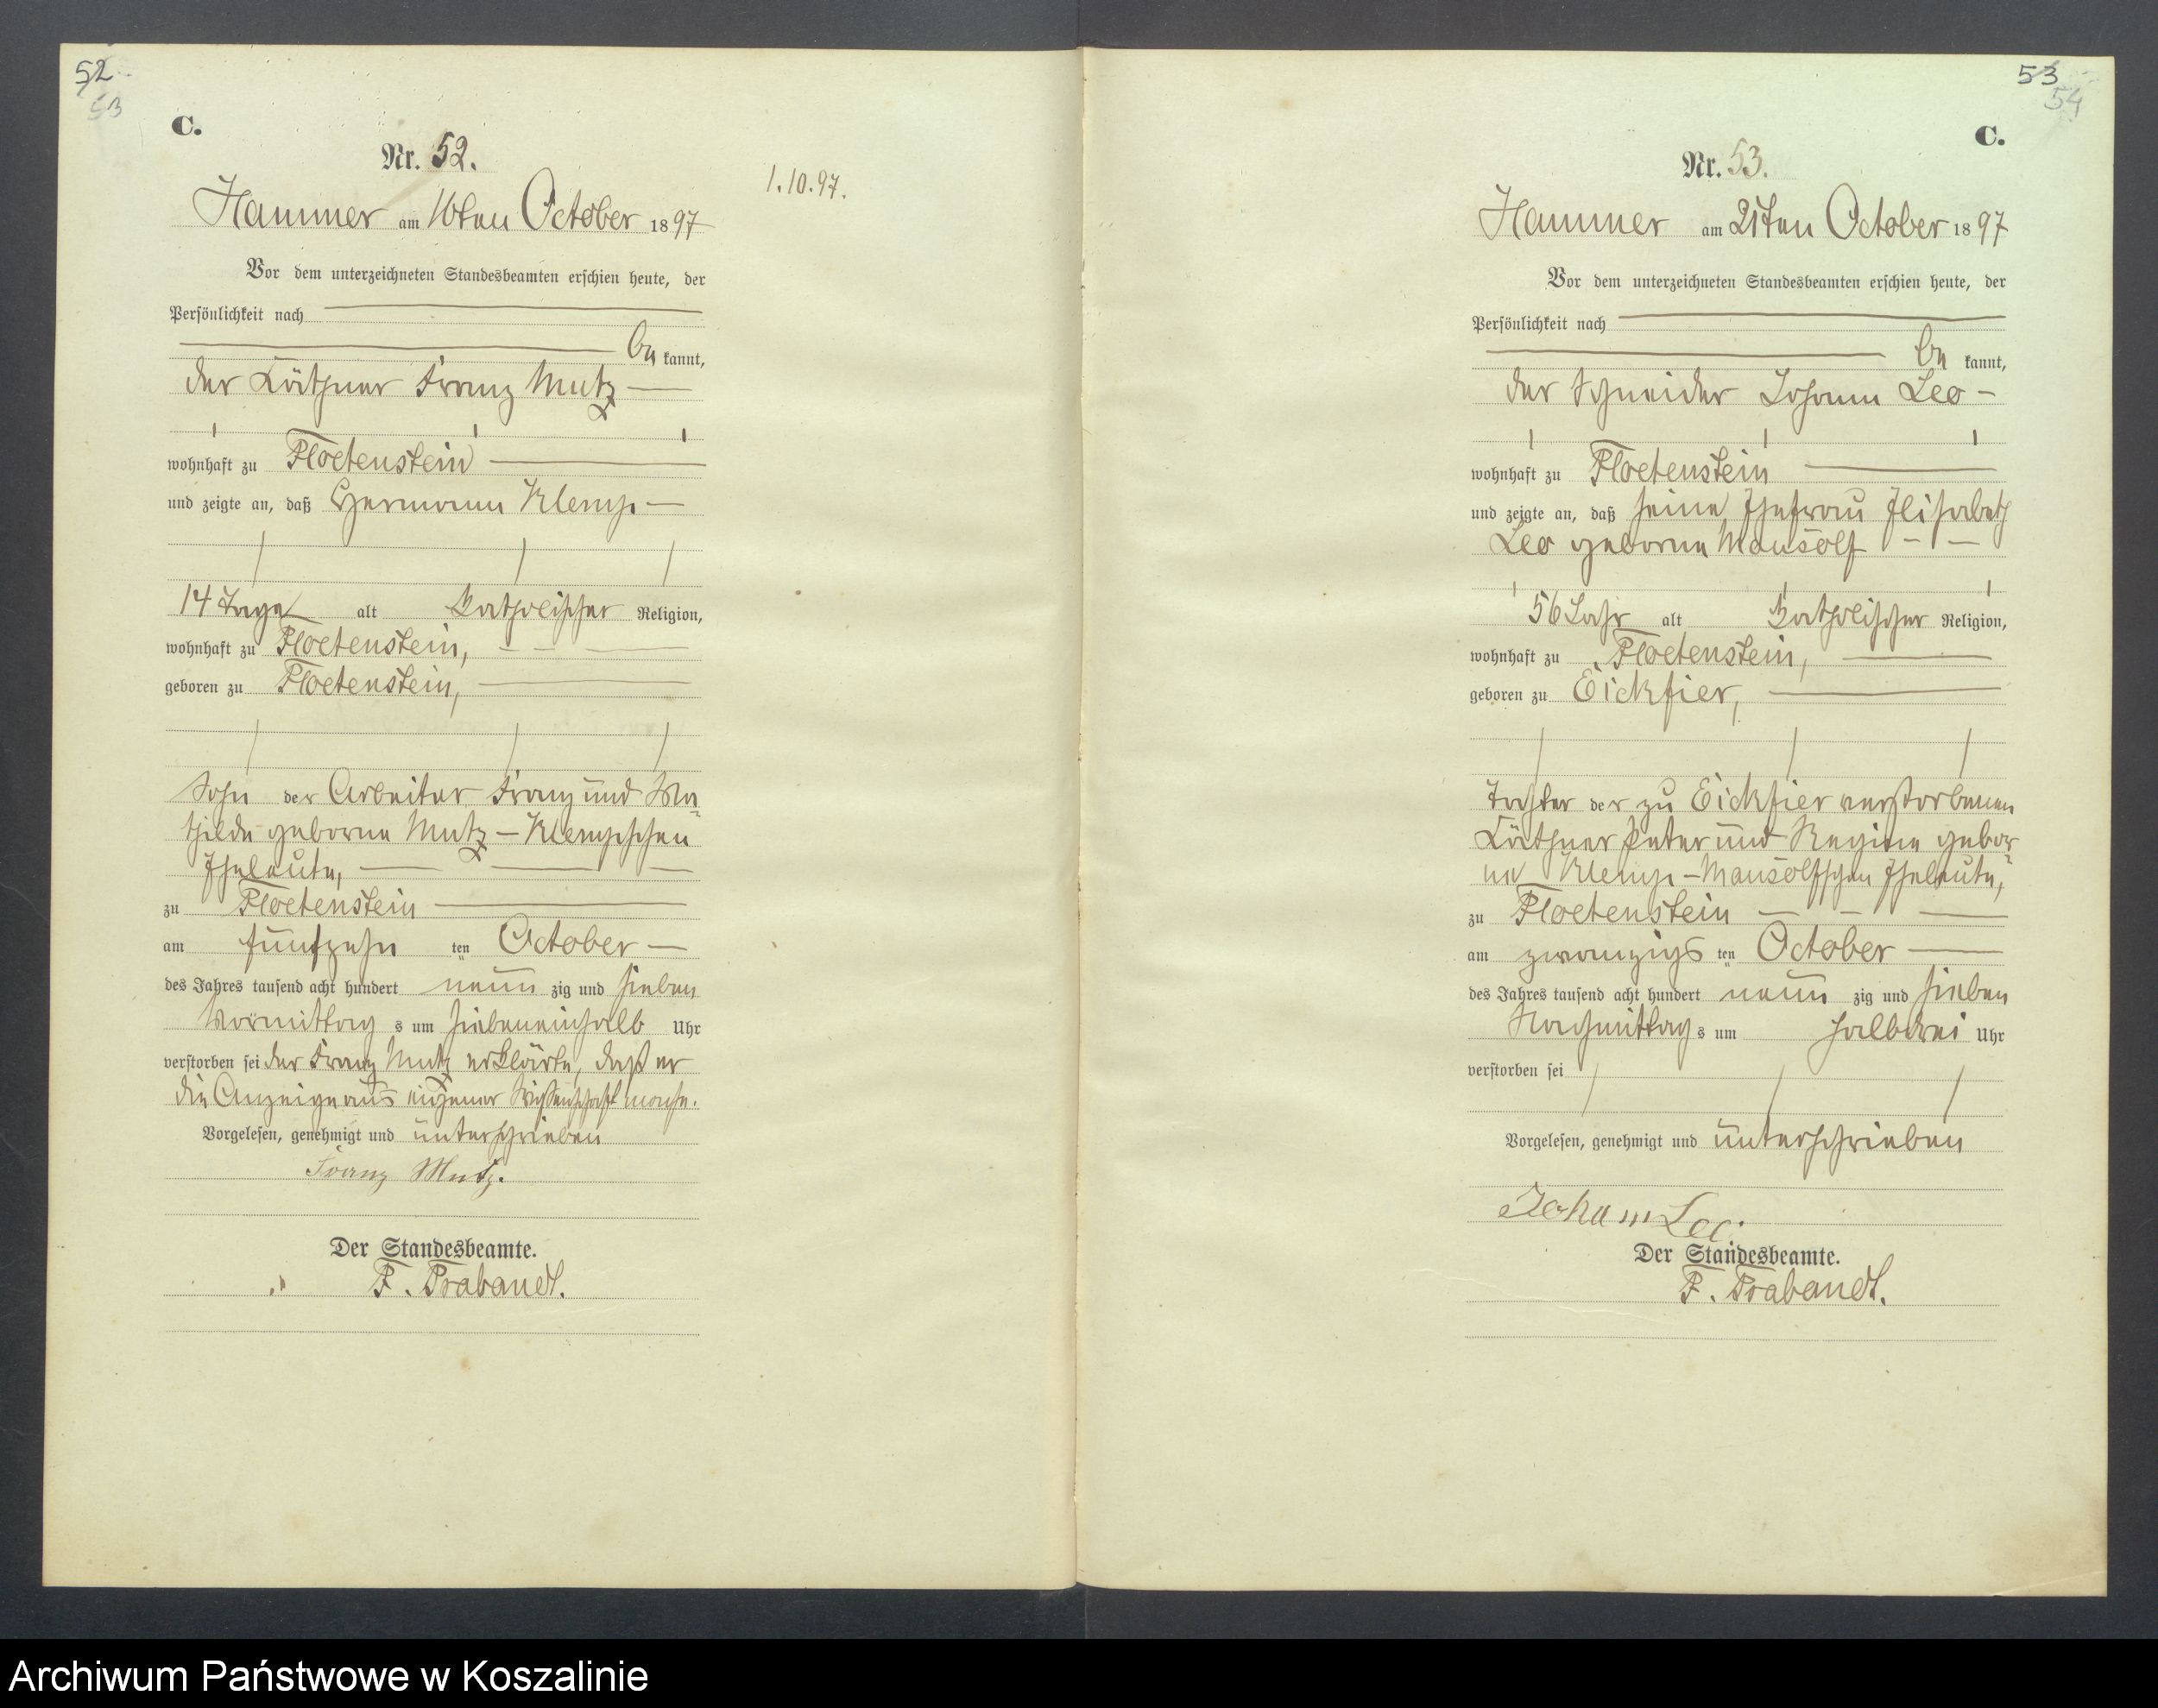 52
53
C.
Nr. 52.
1.10.97.
Hammer am 16ten October 1897
Vor dem unterzeichneten Standesbeamten erschien heute, der
Persönlichkeit nach
be kannt,
der Käthner Franz Mutz
wohnhaft zu Floetenstein
und zeigte an, daß Hermann Klemp
14 Tage alt katholischer Religion,
wohnhaft zu Floetenstein,
geboren zu Floetenstein,
Sohn der Arbeiter Franz und Ma-
thilde geborne Mutz - Klempschen
Eheleute,
zu Floetenstein
am fünfzehn ten October
des Jahres tausend acht hundert neun zig und sieben
Vormittag s um siebeneinhalb Uhr
verstorben sei der Franz Mutz erklärte, daß er
die Anzeige aus eigener Wissenschaft mache.
Vorgelesen, genehmigt und unterschrieben
Franz Mutz.
Der Standesbeamte.
F. Prabandt.
53
54
C.
Nr. 53.
Hammer am 21ten October 1897
Vor dem unterzeichneten Standesbeamten erschien heute, der
Persönlichkeit nach
be kannt,
der Schneider Johann Leo
wohnhaft zu Floetenstein
und zeigte an, daß seine Ehefrau Elisabeth
Leo geborne Mausolf
56 Jahr alt katholischer Religion,
wohnhaft zu Floetenstein,
geboren zu Eickfier,
Tochter der zu Eickfier verstorbenen
Käthner Peter und Regine gebor-
ne Klemp - Mausolfschen Eheleute,
zu Floetenstein
am zwanzigs ten October
des Jahres tausend acht hundert neun zig und sieben
Nachmittag s um halbdrei Uhr
verstorben sei
Vorgelesen, genehmigt und unterschrieben
Johann Leo
Der Standesbeamte.
F. Prabandt.
Archiwum Państwowe w Koszalinie